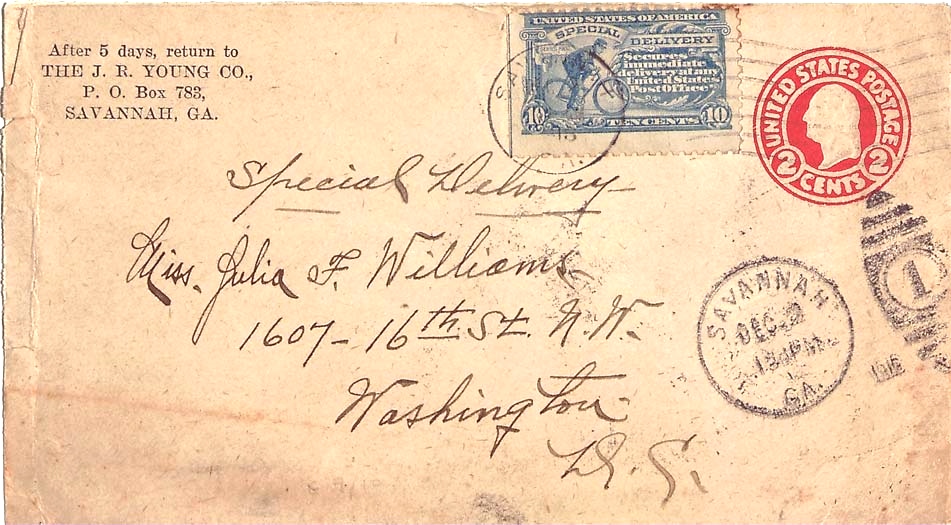 After 5 days, return to
THE J. R. YOUNG CO.,
P. O. Box 783,
SAVANNAH, GA.
UNITED STATES OF AMERICA
SPECIAL DELIVERY
Secures
immediate
delivery at any
United States
Post Office
10 TEN CENTS 10
UNITED STATES POSTAGE
2 CENTS 2
Special Delivery
Miss. Julia F. Williams
1607-16th St. N.W.
Washington
D. C.
SAVANNAH
DEC
PM
GA.
1